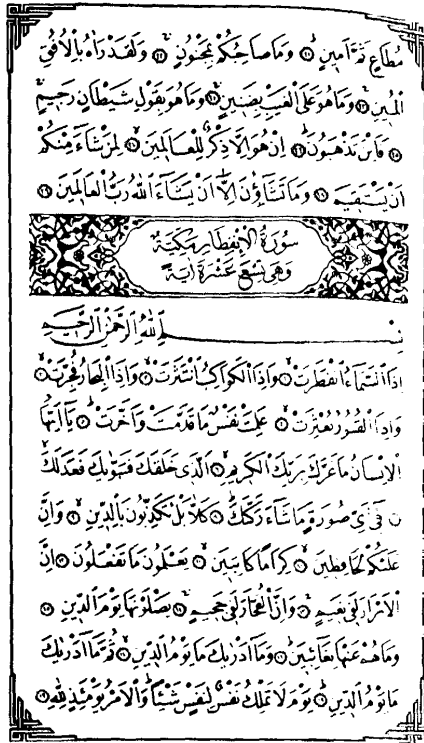 مُطَاعٍ ثَمَّ اَمِينٍ ﴿٢١﴾ وَمَا صَاحِبُكُمْ بِمَجْنُونٍ ﴿٢٢﴾ وَلَقَدْ رَاٰهُ بِالْاُفُقِ
الْمُبِينِ ﴿٢٣﴾ وَمَا هُوَ عَلَى الْغَيْبِ بِضَنِينٍ ﴿٢٤﴾ وَمَا هُوَ بِقَوْلِ شَيْطَانٍ رَجِيمٍ
﴿٢٥﴾ فَاَيْنَ تَذْهَبُونَ ﴿٢٦﴾ اِنْ هُوَ اِلَّا ذِكْرٌ لِلْعَالَمِينَ ﴿٢٧﴾ لِمَنْ شَاءَ مِنْكُمْ
اَنْ يَسْتَقِيمَ ﴿٢٨﴾ وَمَا تَشَاؤُنَ اِلَّا اَنْ يَشَاءَ اللّٰهُ رَبُّ الْعَالَمِينَ ﴿٢٩﴾
سُورَةُ الْاِنْفِطَارِ مَكِّيَّةٌ
وَهِيَ تِسْعَ عَشْرَةَ اٰيَةً
بِسْــــــمِ اللّٰهِ الرَّحْمٰنِ الرَّحِيمِ
اِذَا السَّمَاءُ انْفَطَرَتْ ﴿١﴾ وَاِذَا الْكَوَاكِبُ انْتَثَرَتْ ﴿٢﴾ وَاِذَا الْبِحَارُ فُجِّرَتْ ﴿٣﴾
وَاِذَا الْقُبُورُ بُعْثِرَتْ ﴿٤﴾ عَلِمَتْ نَفْسٌ مَا قَدَّمَتْ وَاَخَّرَتْ ﴿٥﴾ يَا اَيُّهَا
الْاِنْسَانُ مَا غَرَّكَ بِرَبِّكَ الْكَرِيمِ ﴿٦﴾ اَلَّذِي خَلَقَكَ فَسَوّٰيكَ فَعَدَلَكَ
﴿٧﴾ فِي اَيِّ صُورَةٍ مَا شَاءَ رَكَّبَكَ ﴿٨﴾ كَلَّا بَلْ تُكَذِّبُونَ بِالدِّينِ ﴿٩﴾ وَاِنَّ
عَلَيْكُمْ لَحَافِظِينَ ﴿١٠﴾ كِرَامًا كَاتِبِينَ ﴿١١﴾ يَعْلَمُونَ مَا تَفْعَلُونَ ﴿١٢﴾ اِنَّ
الْاَبْرَارَ لَفِي نَعِيمٍ ﴿١٣﴾ وَاِنَّ الْفُجَّارَ لَفِي جَحِيمٍ ﴿١٤﴾ يَصْلَوْنَهَا يَوْمَ الدِّينِ ﴿١٥﴾
وَمَا هُمْ عَنْهَا بِغَائِبِينَ ﴿١٦﴾ وَمَا اَدْرٰيكَ مَا يَوْمُ الدِّينِ ﴿١٧﴾ ثُمَّ مَا اَدْرٰيكَ
مَا يَوْمُ الدِّينِ ﴿١٨﴾ يَوْمَ لَا تَمْلِكُ نَفْسٌ لِنَفْسٍ شَيْئًا وَالْاَمْرُ يَوْمَئِذٍ لِلّٰهِ ﴿١٩﴾